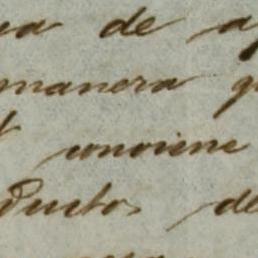 ua de a
manera q
conviene
ductos de